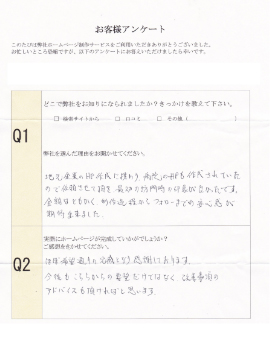 お客様アンケート
このたびは弊社ホームページ制作サービスをご利用いただきありがとうございました。
お忙しいところ恐縮ですが、以下のアンケートにお答えいただけましたら幸いです。
どこで弊社をお知りになられましたか？きっかけを教えて下さい。
□ 検索サイトから □ 口コミ □ その他（ ）
Q1
弊社を選んだ理由をお聞かせください。
地元企業のHP
病院のHPも作成されていた
ので
金額はともかく 制作過程からフォローまでの安心感が
期待出来ました。
実際にホームページが完成していかがでしょうか？
ご感想をきかせてください。
Q2
希望通りの完成となり感謝しております。
今後もこちらからの要望だけではなく 改善事項の
アドバイスも頂ければと思います。